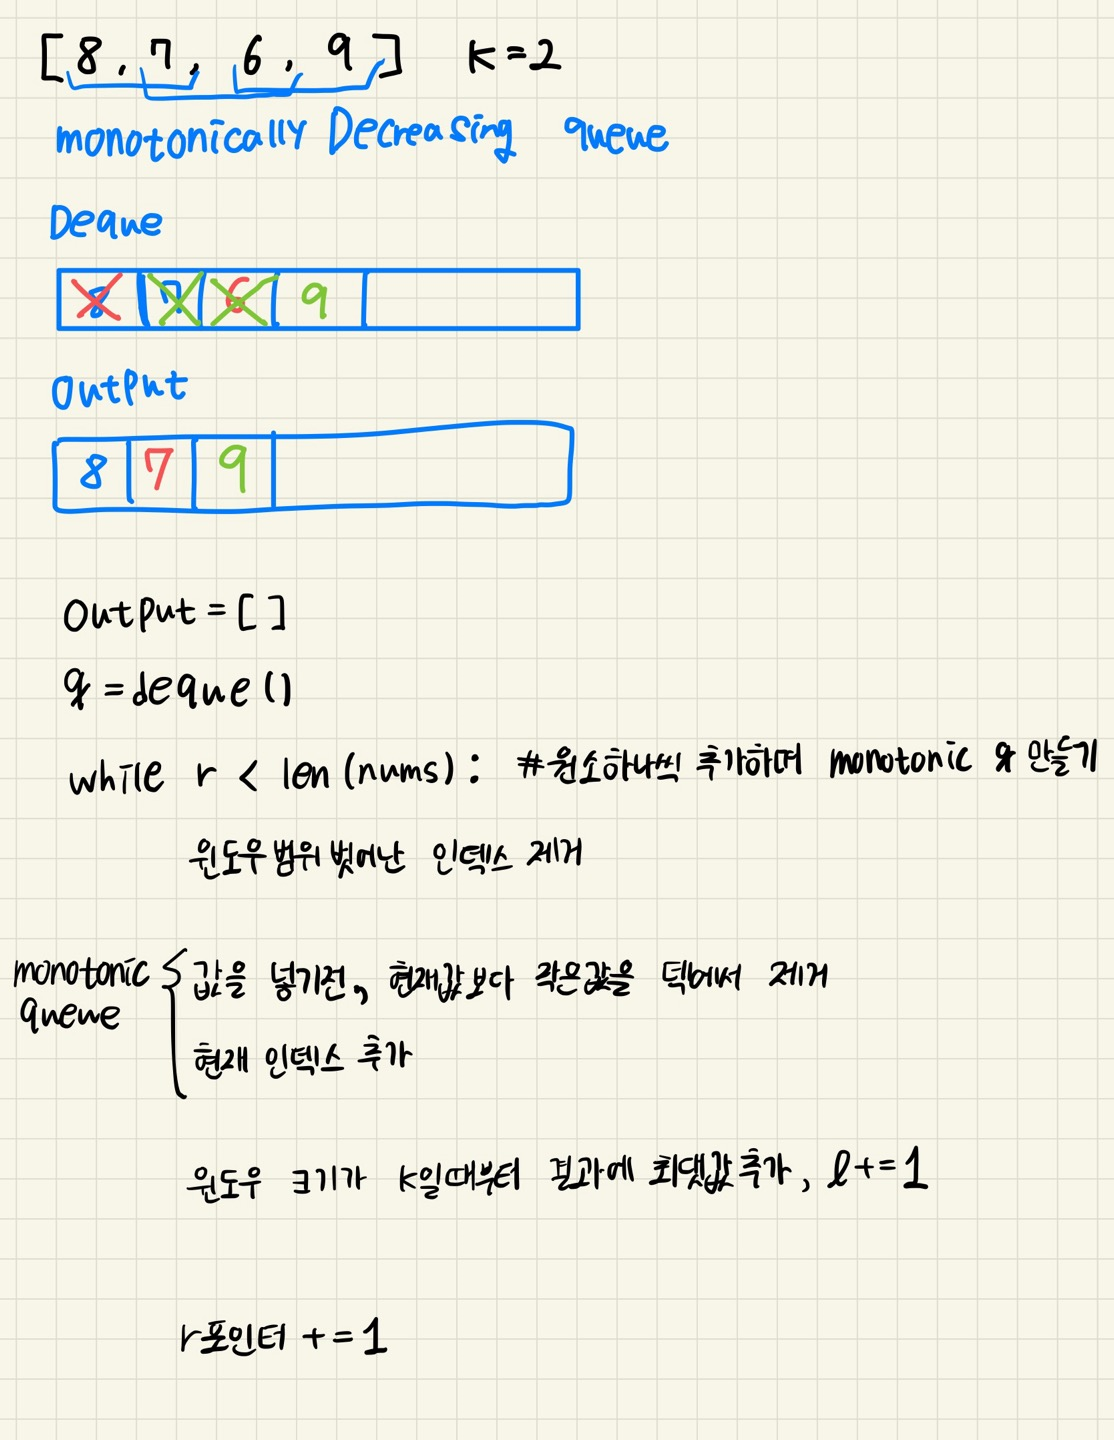 [8, 7, 6, 9] K=2
monotonically Decreasing queue
Deque
8 7 6 9
Output
8 7 9
Output = []
q = deque()
while r < len(nums): #원소하나씩 추가하며 monotonic q 만들기
윈도우 범위 벗어난 인덱스 제거
monotonic queue
값을 넣기전, 현재값보다 작은값을 덱에서 제거
현재 인덱스 추가
윈도우 크기가 K일때부터 결과에 최댓값 추가, l+=1
r포인터 +=1